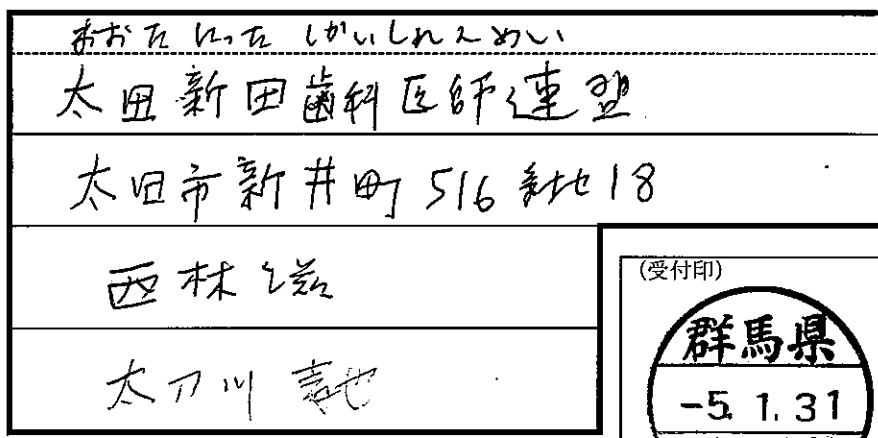 おおたにったしかいしれんめい
太田新田歯科医師連盟
太田市新井町516番地18
西林滋
太刀川
(受付印)
群馬県
-5.1.31